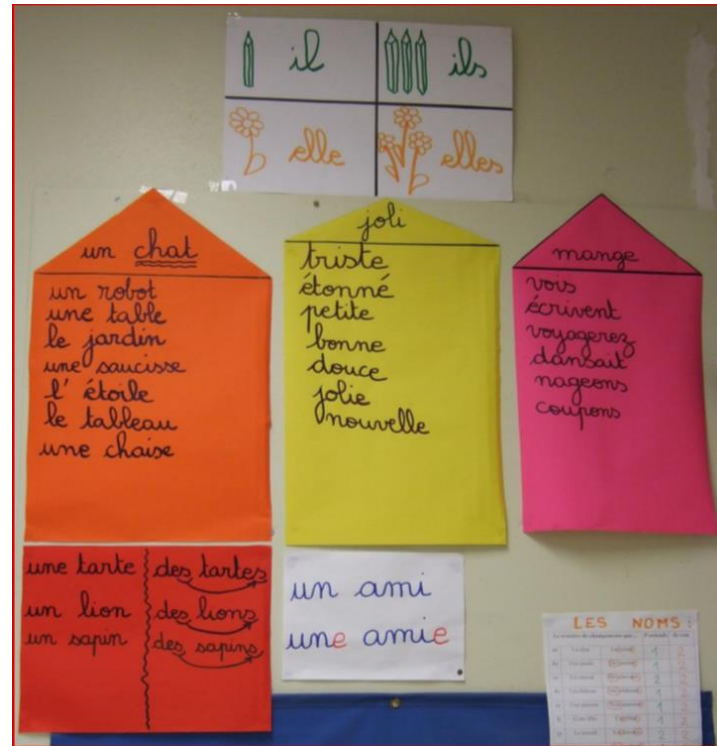 il ils
elle elles
un chat
un robot
une table
le jardin
une saucisse
l'étoile
le tableau
une chaise
joli
triste
étonné
petite
bonne
douce
jolie
nouvelle
mange
vois
écrivent
voyagerez
dansait
nageons
coupons
une tarte des tartes
un lion des lions
un sapin des sapins
un ami
une amie
LES NOMS :